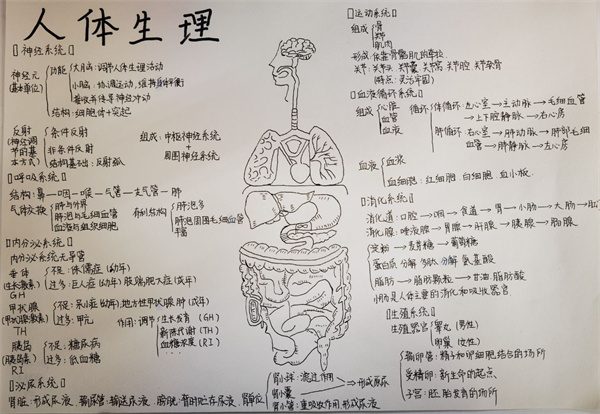 人体生理
[] 神经系统 []
神经元
(基本单位)
功能
大脑: 调节人体生理活动
小脑: 协调运动, 维持身体平衡
接收并传导神经冲动
结构: 细胞体+突起
反射
(神经调节的基本方式)
条件反射
非条件反射
结构基础: 反射弧
组成: 中枢神经系统
+
周围神经系统
[] 呼吸系统 []
结构: 鼻—咽—喉—气管—支气管—肺
气体交换
肺与外界
肺泡与毛细血管
血液与组织细胞
有利结构
肺泡多
肺泡周围毛细血管丰富
[] 内分泌系统 []
内分泌系统无导管
垂体
(生长激素)
GH
不足: 侏儒症 (幼年)
过多: 巨人症 (幼年) 肢端肥大症 (成年)
甲状腺
(甲状腺激素)
TH
不足: 呆小症 (幼年) 地方性甲状腺肿 (成年)
过多: 甲亢
作用: 调节
生长发育 (GH)
新陈代谢 (TH)
血糖浓度 (RI)
胰岛
(胰岛素)
RI
不足: 糖尿病
过多: 低血糖
[] 泌尿系统 []
肾脏: 形成尿液. 输尿管: 输送尿液. 膀胱: 暂时贮存尿液. 肾单位
肾小球: 滤过作用
肾小囊
形成原尿
肾小管: 重吸收作用 形成尿液
[] 运动系统 []
组成
骨
关节
肌肉
形成: 依靠骨骼肌的牵拉
关节: 关节头 关节囊 关节窝 关节腔 关节软骨
(特点: 灵活牢固)
[] 血液循环系统 []
组成
心脏
血管
血液
循环
体循环: 左心室→主动脉→毛细血管→上下腔静脉→右心房
肺循环: 右心室→肺动脉→肺部毛细血管→肺静脉→左心房
血液
血浆
血细胞: 红细胞 白细胞 血小板
[] 消化系统 []
消化道: 口腔→咽→食道→胃→小肠→大肠→肛
消化腺: 唾液腺→胃腺→肝腺→胰腺→肠腺
淀粉→麦芽糖→葡萄糖
蛋白质 分解 多肽 分解 氨基酸
脂肪→脂肪颗粒→甘油. 脂肪酸
小肠是人体主要的消化和吸收器官
[] 生殖系统
生殖器官
睾丸 (男性)
卵巢 (女性)
输卵管: 精子和卵细胞结合的场所
受精卵: 新生命的起点
子宫: 胚胎发育的场所